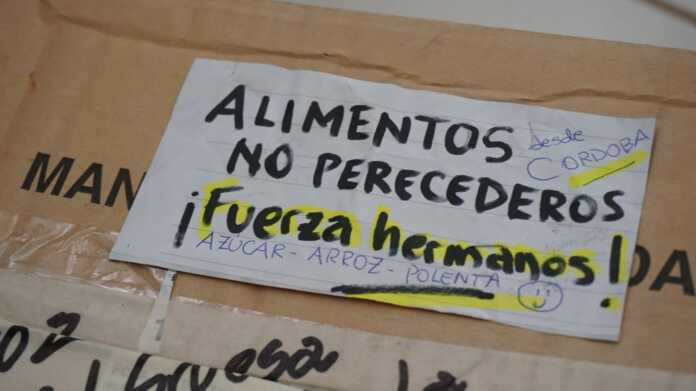 ALIMENTOS
desde
CORDOBA
NO PERECEDEROS
¡Fuerza hermanos!
AZÚCAR - ARROZ - POLENTA
MAN
DA